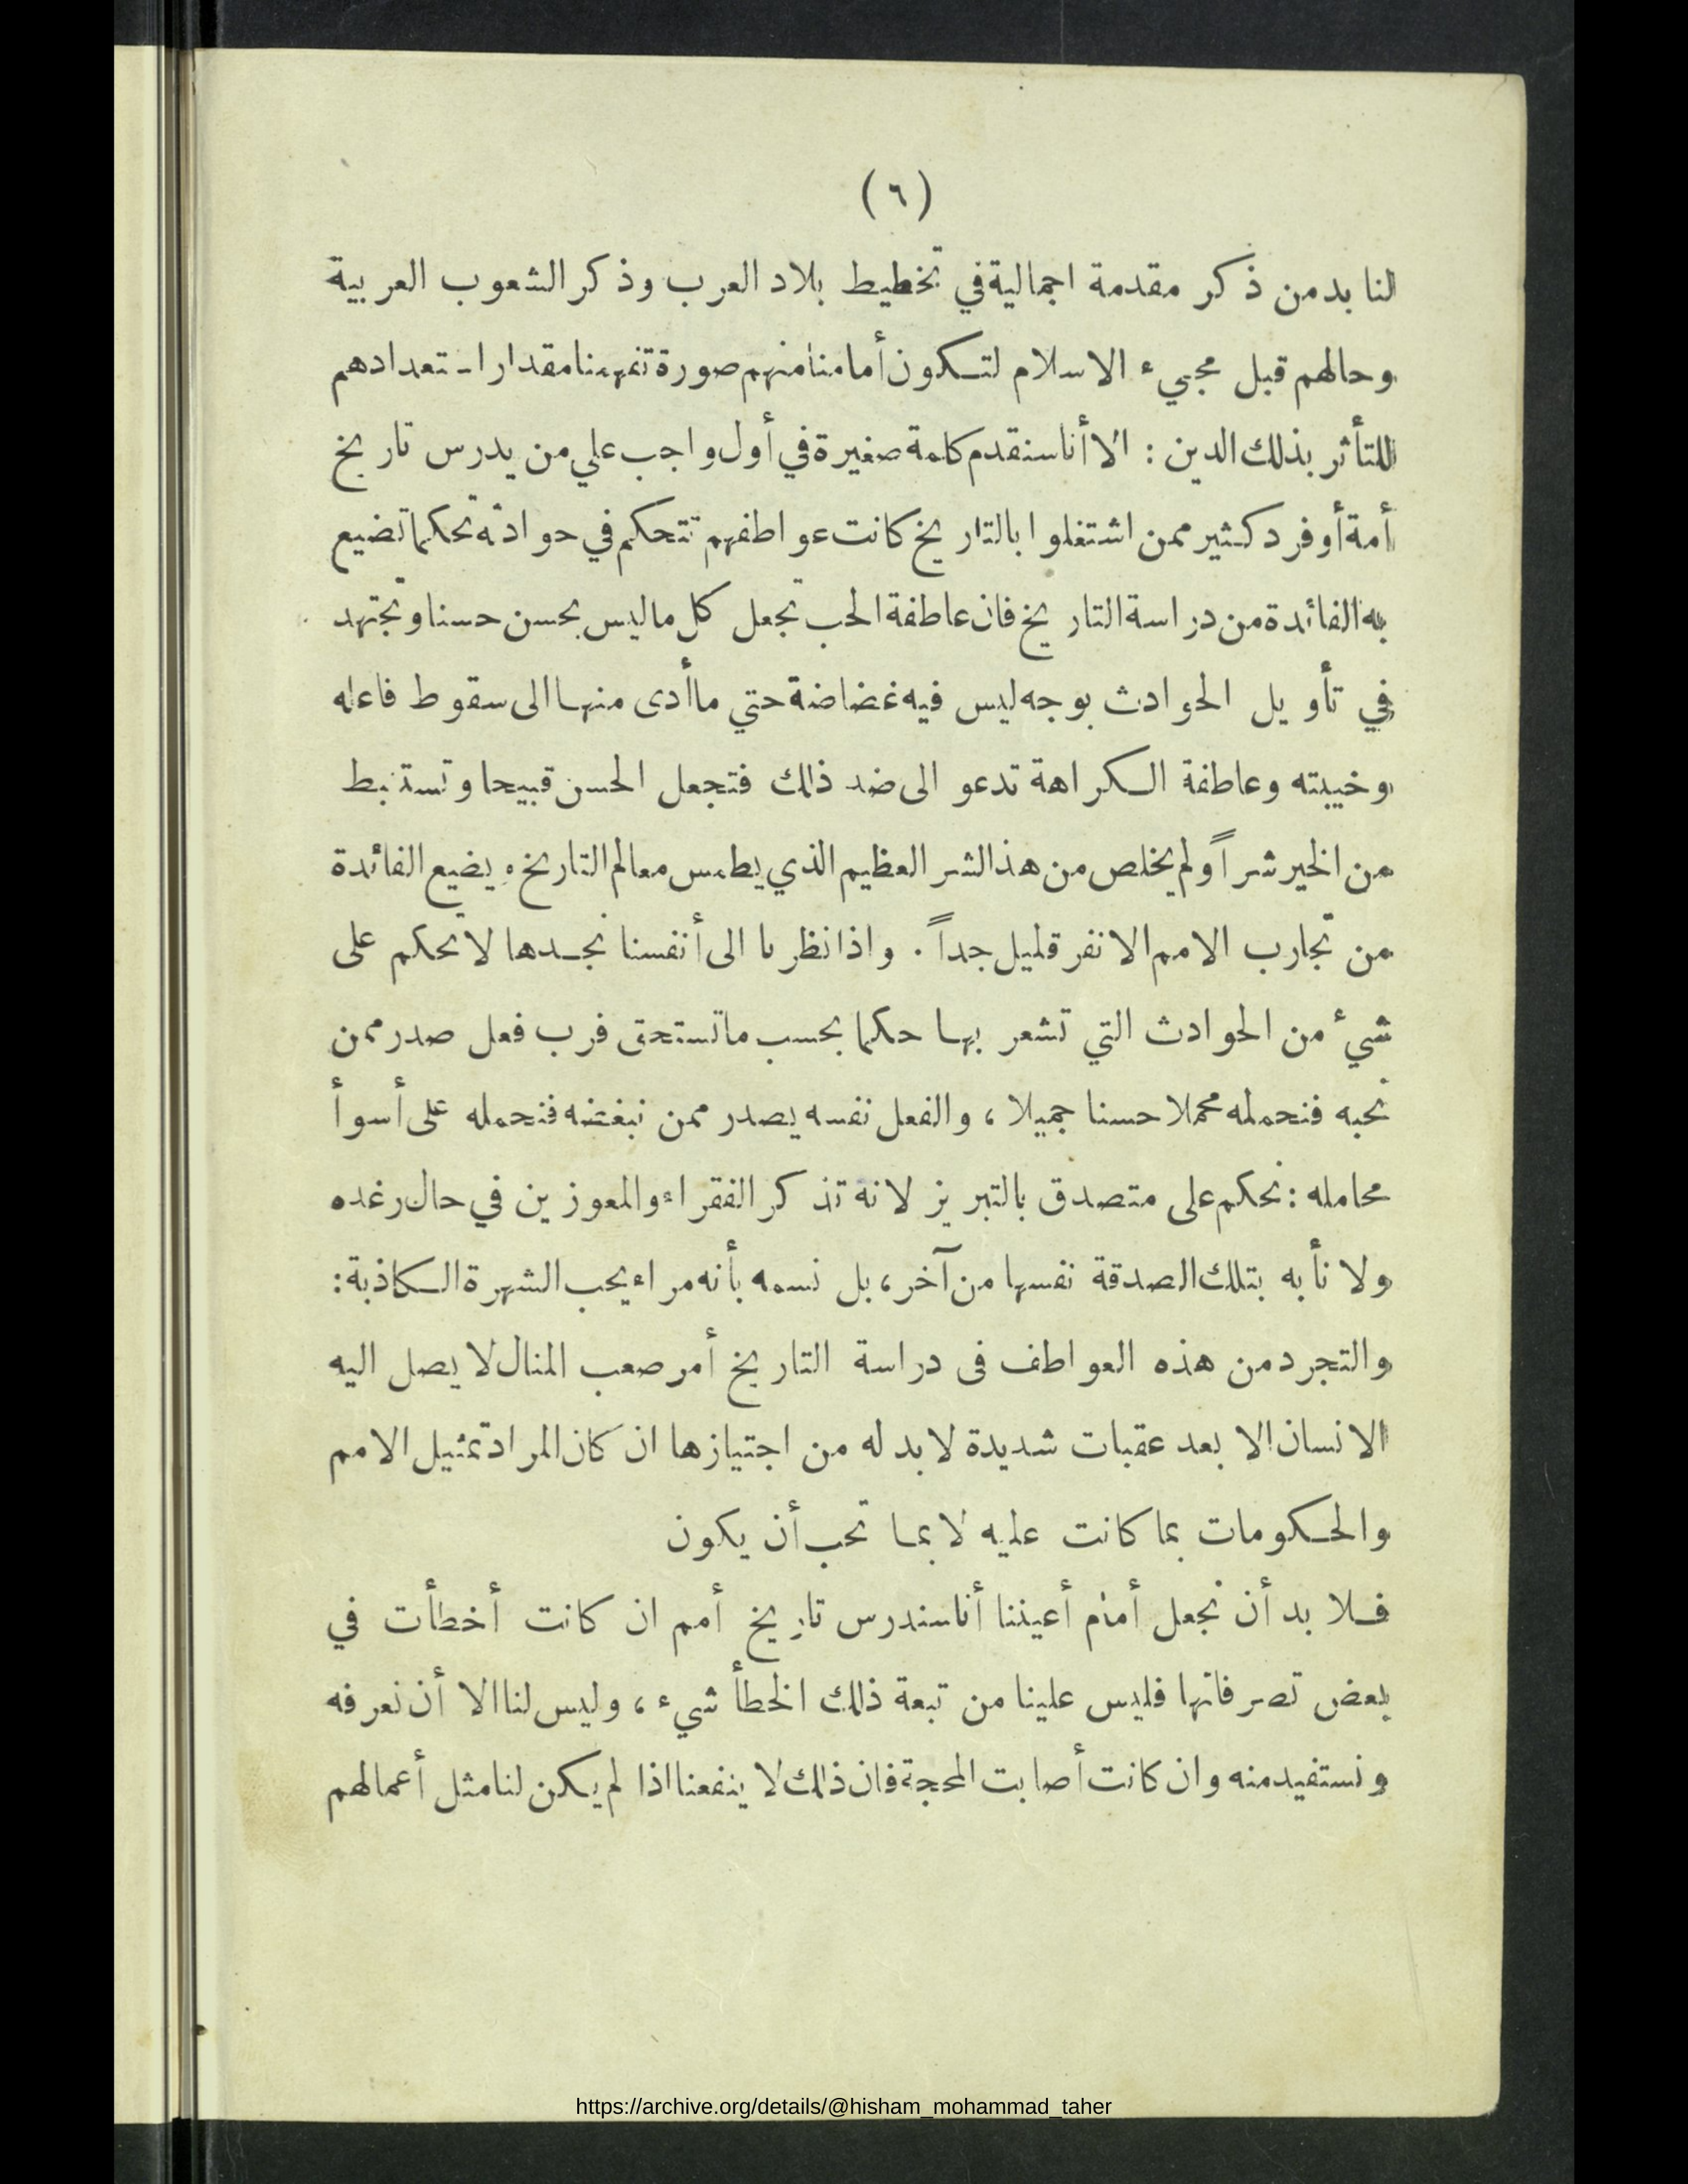 (٦)
لنا بد من ذكر مقدمة اجمالية في تخطيط بلاد العرب وذكر الشعوب العربية
وحالهم قبل مجيء الاسلام لتكون أمامنا منهم صورة تفهمنا مقدار استعدادهم
للتأثر بذلك الدين : الا أنا سنقدم كلمة صغيرة في أول واجب علي من يدرس تاريخ
أمة أو فرد كثير ممن اشتغلوا بالتاريخ كانت عواطفهم تتحكم في حوادثه تحكما تضيع
به الفائدة من دراسة التاريخ فان عاطفة الحب تجعل كل ما ليس بحسن حسنا وتجتهد
في تأويل الحوادث بوجه ليس فيه غضاضة حتي ما أدى منها الى سقوط فاعله
وخيبته وعاطفة الكراهة تدعو الى ضد ذلك فتجعل الحسن قبيحا وتستنبط
من الخير شراً ولم يخلص من هذا الشر العظيم الذي يطمس معالم التاريخ ويضيع الفائدة
من تجارب الامم الا نفر قليل جداً . واذا نظرنا الى أنفسنا نجدها لا تحكم على
شيء من الحوادث التي تشعر بها حكما بحسب ما تستحق فرب فعل صدر ممن
نحبه فنحمله محملا حسنا جميلا ، والفعل نفسه يصدر ممن نبغضه فنحمله على أسوأ
محامله : نحكم على متصدق بالتبريز لانه تذكر الفقراء والمعوزين في حال رغده
ولا نأبه بتلك الصدقة نفسها من آخر ، بل نسمه بأنه مراء يحب الشهرة الكاذبة :
والتجرد من هذه العواطف فى دراسة التاريخ أمر صعب المنال لا يصل اليه
الانسان الا بعد عقبات شديدة لا بد له من اجتيازها ان كان المراد تمثيل الامم
والحكومات بما كانت عليه لا بما تحب أن يكون
فلا بد أن نجعل أمام أعيننا أنا سندرس تاريخ أمم ان كانت أخطأت في
بعض تصرفاتها فليس علينا من تبعة ذلك الخطأ شيء ، وليس لنا الا أن نعرفه
ونستفيد منه وان كانت أصابت المحجة فان ذلك لا ينفعنا اذا لم يكن لنا مثل أعمالهم
https://archive.org/details/@hisham_mohammad_taher